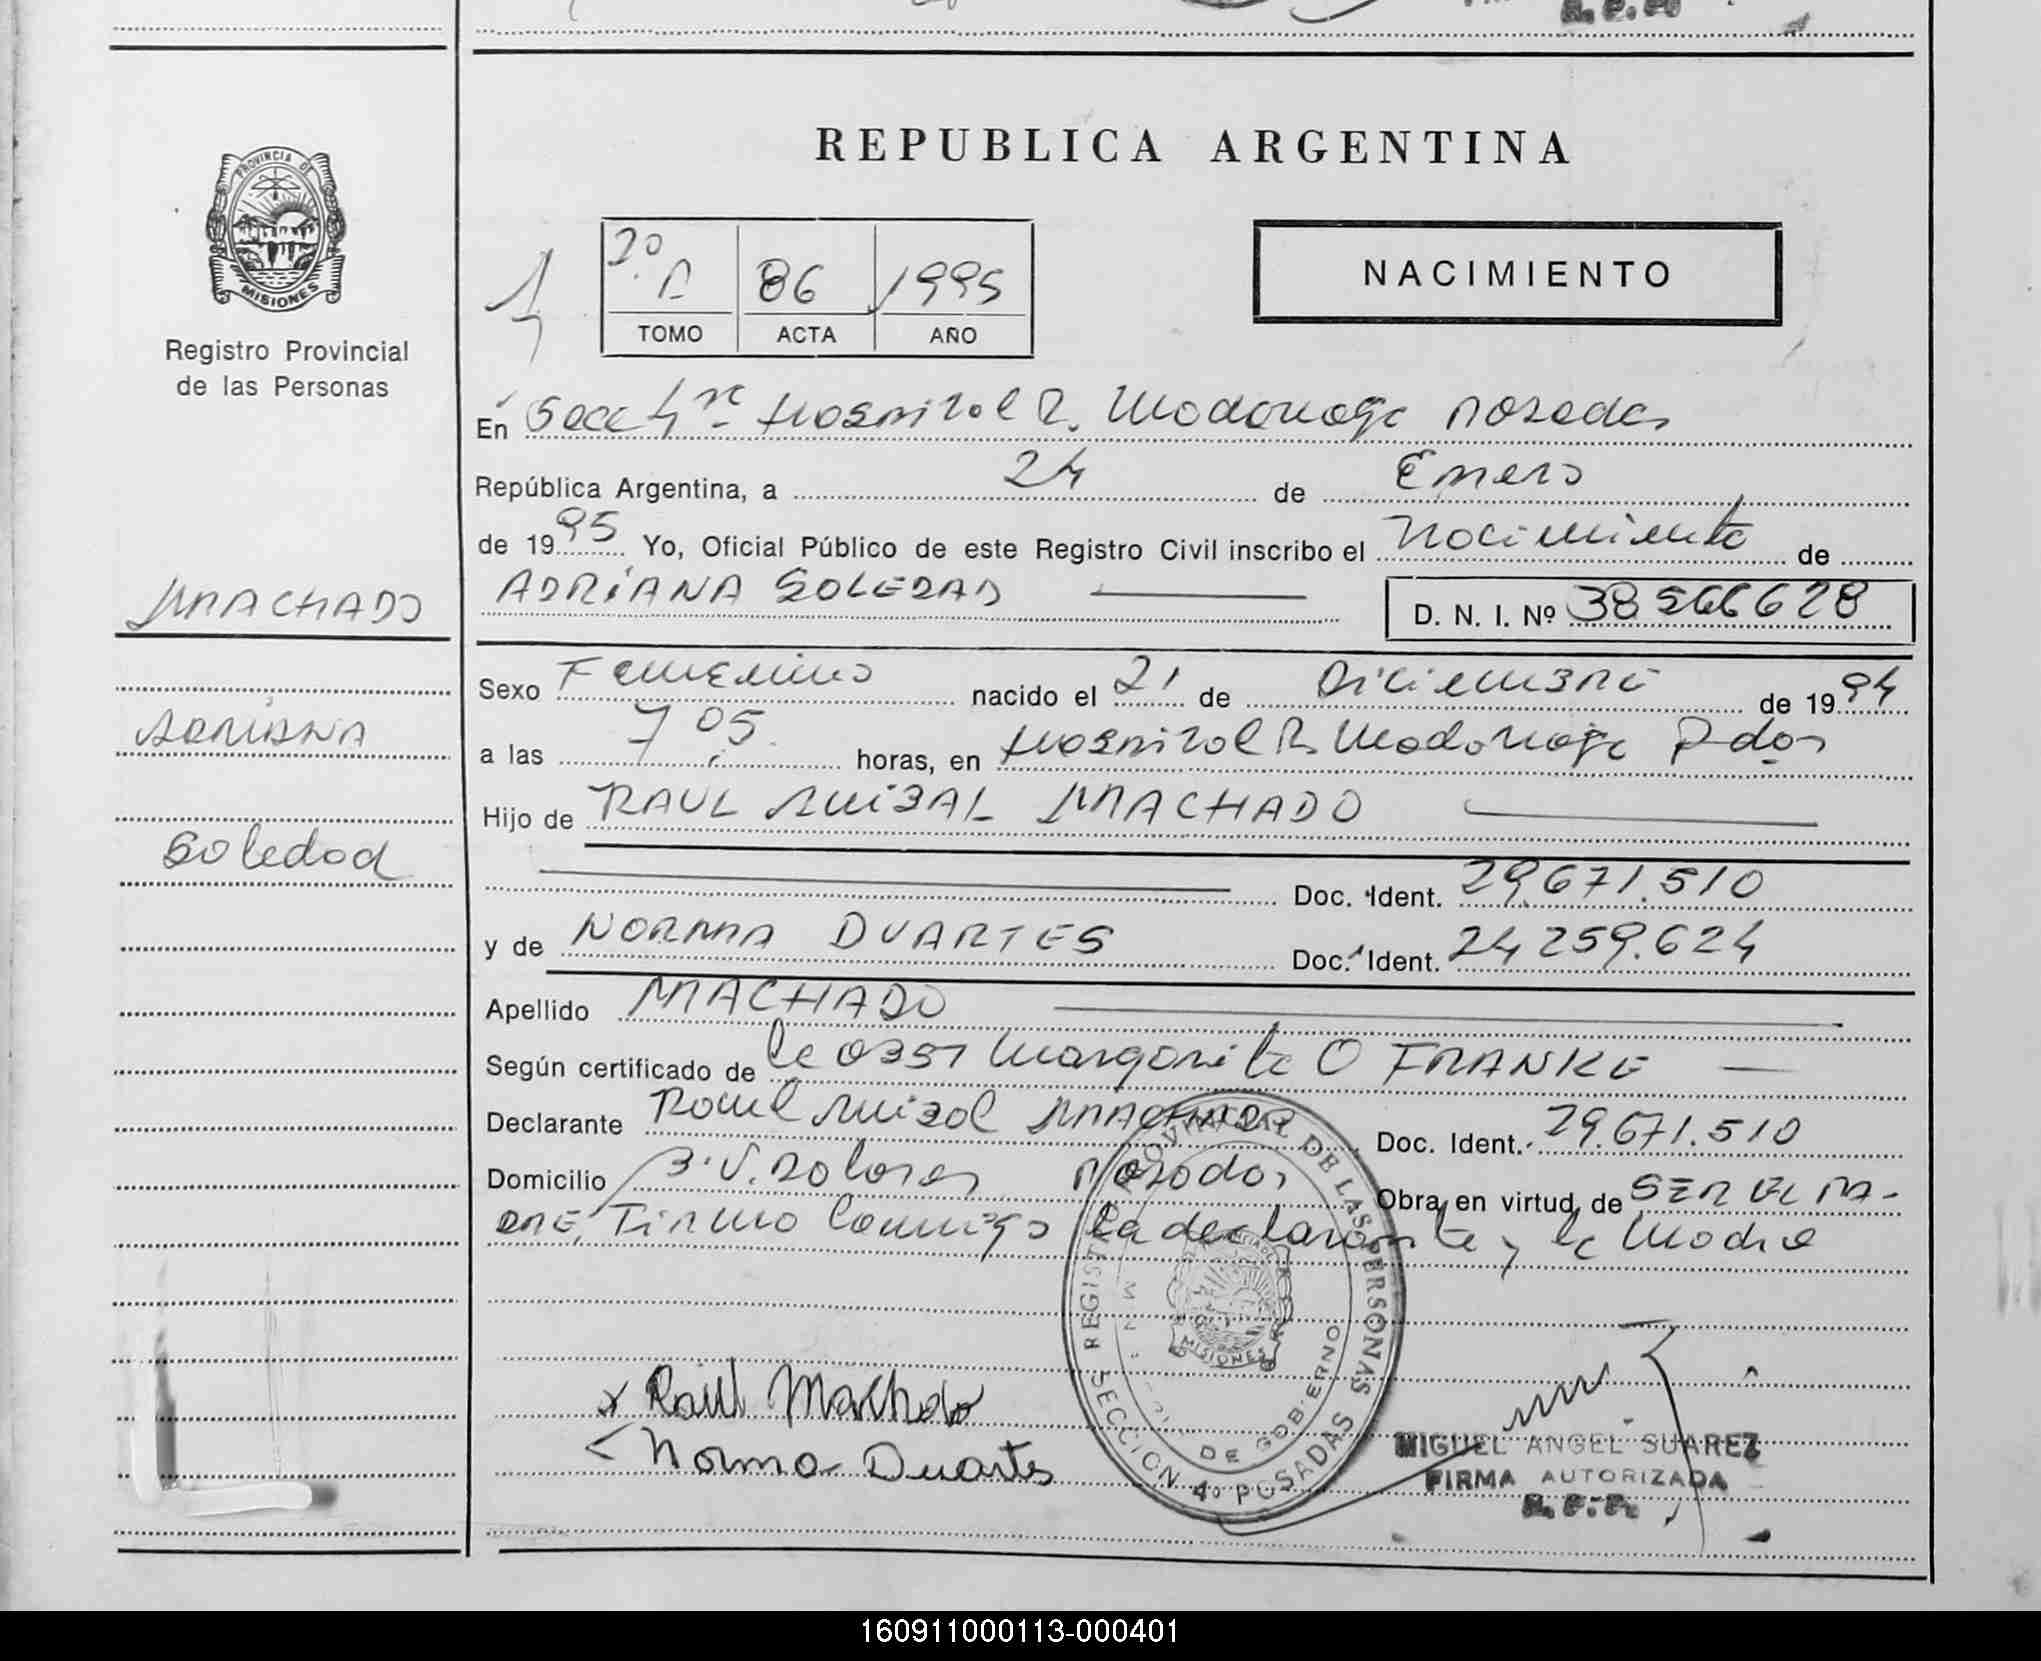 PROVINCIA DE
MISIONES
Registro Provincial
de las Personas
MACHADO
ADRIANA
Soledad
REPUBLICA ARGENTINA
1
2º A 86 1995
TOMO ACTA AÑO
NACIMIENTO
En Secc 4ta Hospital R. Madariaga Posadas
República Argentina, a 24 de Enero
de 1995 Yo, Oficial Público de este Registro Civil inscribo el Nacimiento de
ADRIANA SOLEDAD
D. N. I. Nº 38566628
Sexo Femenino nacido el 21 de Diciembre de 1994
a las 7 05 horas, en Hospital R. Madariaga Pdas
Hijo de RAUL ANIBAL MACHADO
Doc. Ident. 29.671.510
y de NORMA DUARTES Doc. Ident. 24 259.624
Apellido MACHADO
Según certificado de la Obst Margarita O FRANKE
Declarante Raul Anibal MACHADO Doc. Ident. 29.671.510
Domicilio B. V. Dolores Posadas Obra en virtud de SER EL PA-
DRE, Firma conmigo la declarante y la Madre
REGISTRO PROVINCIAL DE LAS PERSONAS
SECCION 4º POSADAS
DE GOBIERNO
MISIONES
x Raúl Machado
Norma Duartes
MIGUEL ANGEL SUAREZ
FIRMA AUTORIZADA
R. P. P.
160911000113-000401